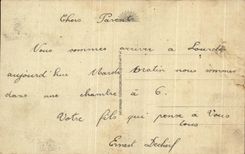 Chers Parents
Nous sommes arrivé a Lourdes
aujourd'hui Mardi Matin nous sommes
dans une chambre à 6.
Votre fils qui pense à Vous
tous.
Ernest